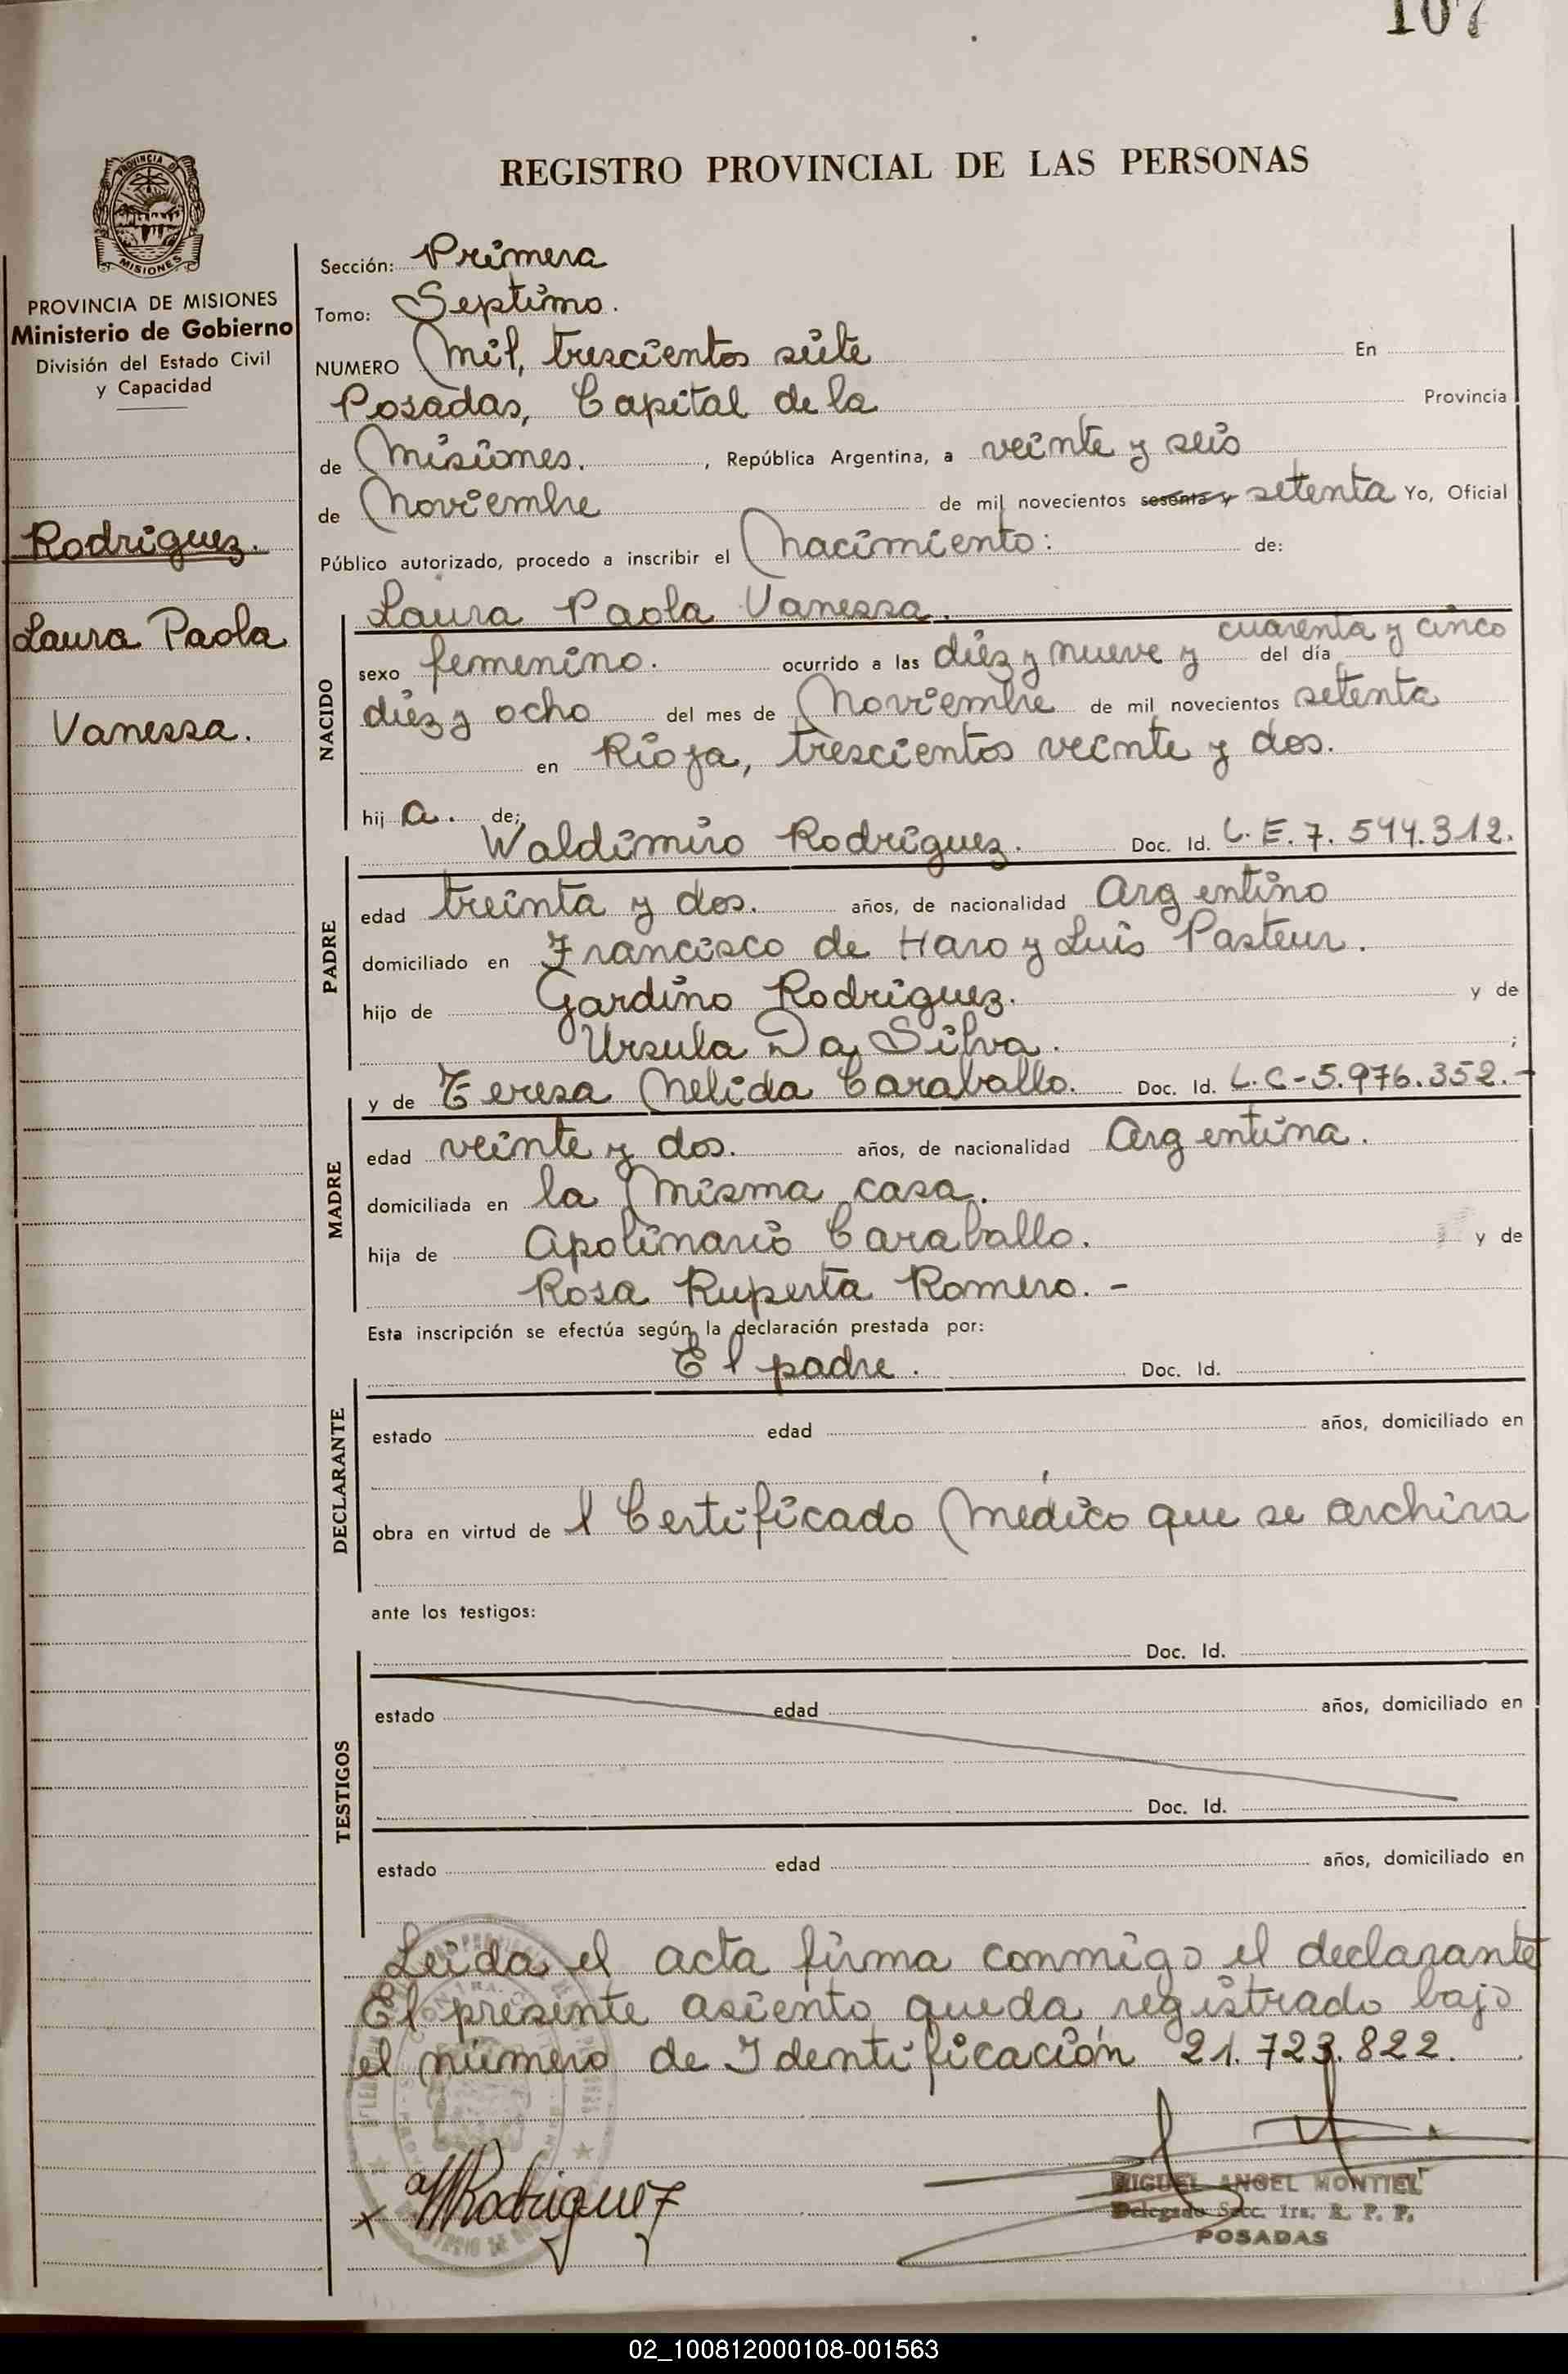 107
REGISTRO PROVINCIAL DE LAS PERSONAS
PROVINCIA DE
MISIONES
PROVINCIA DE MISIONES
Ministerio de Gobierno
División del Estado Civil
y Capacidad
Rodríguez.
Laura Paola
Vanessa.
Sección: Primera
Tomo: Septimo.
NUMERO Mil, trescientos siete En
Posadas, Capital de la Provincia
de Misiones. , República Argentina, a veinte y seis
de Noviembre de mil novecientos sesenta y setenta Yo, Oficial
Público autorizado, procedo a inscribir el Nacimiento: de:
Laura Paola Vanessa.
NACIDO
cuarenta y cinco
sexo femenino. ocurrido a las diez y nueve y del día
diez y ocho del mes de Noviembre de mil novecientos setenta
en Rioja, trescientos veinte y dos.
hij a. de:
Waldimiro Rodríguez. Doc. Id. L.E. 7.544.312.
PADRE
edad treinta y dos. años, de nacionalidad Argentino
domiciliado en Francisco de Haro y Luis Pasteur.
hijo de Gardino Rodríguez. y de
Ursula Da Silva. ;
y de Teresa Nelida Caraballo. Doc. Id. L.C-5.976.352.-
MADRE
edad veinte y dos. años, de nacionalidad Argentina.
domiciliada en la misma casa.
hija de Apolinario Caraballo. y de
Rosa Ruperta Romero. -
Esta inscripción se efectúa según la declaración prestada por:
El padre. Doc. Id.
DECLARANTE
estado edad años, domiciliado en
obra en virtud de l Certificado Médico que se archiva
ante los testigos:
Doc. Id.
TESTIGOS
estado edad años, domiciliado en
Doc. Id.
estado edad años, domiciliado en
Leida el acta firma conmigo el declarante
El presente asiento queda registrado bajo
el número de Identificación 21.723.822.
x Rodriguez
MIGUEL ANGEL MONTIEL
Delegado Secc. 1ra. R. P. P.
POSADAS
02_100812000108-001563